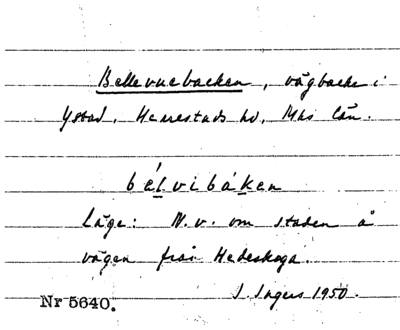 Bellevuebacken, vägbacke i
Ystad, Herrestads hd, Mås län.
bélvibáken
Läge: N.v. om staden å
vägen från Hedeskoga.
J. Ingers 1950.
Nr 5640.